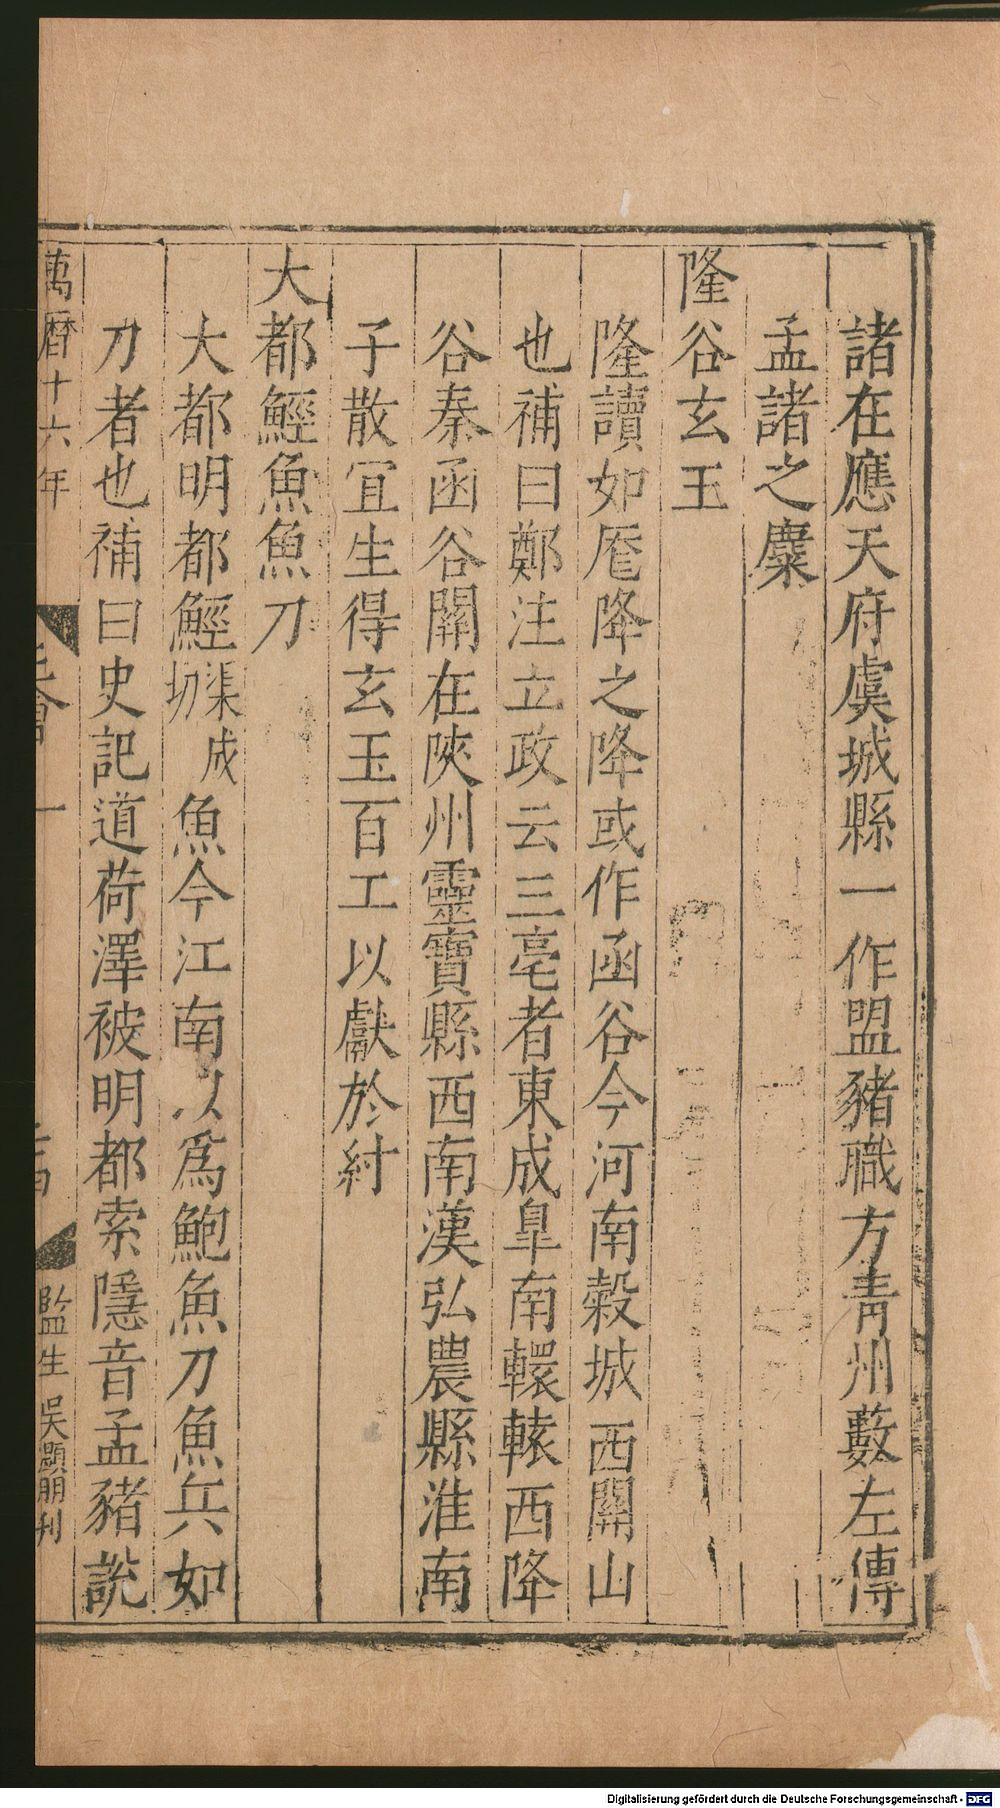 諸在應天府虞城縣一作盟豬職方青州藪左傳
孟諸之麋
隆谷玄玉
隆讀如厖降之降或作函谷今河南榖城西關山
也補曰鄭注立政云三亳者東成臯南轘轅西降
谷秦函谷關在陜州靈寶縣西南漢弘農縣淮南
子散宜生得玄玉百工以獻於紂
大都鯹魚魚刀
大都明都鯹渠成切魚今江南以為鮑魚刀魚兵如
刀者也補曰史記道荷澤被明都索隱音孟豬說
萬曆十六年
王會
一
監生吳顯朋刊
Digitalisierung gefördert durch die Deutsche Forschungsgemeinschaft - DFG